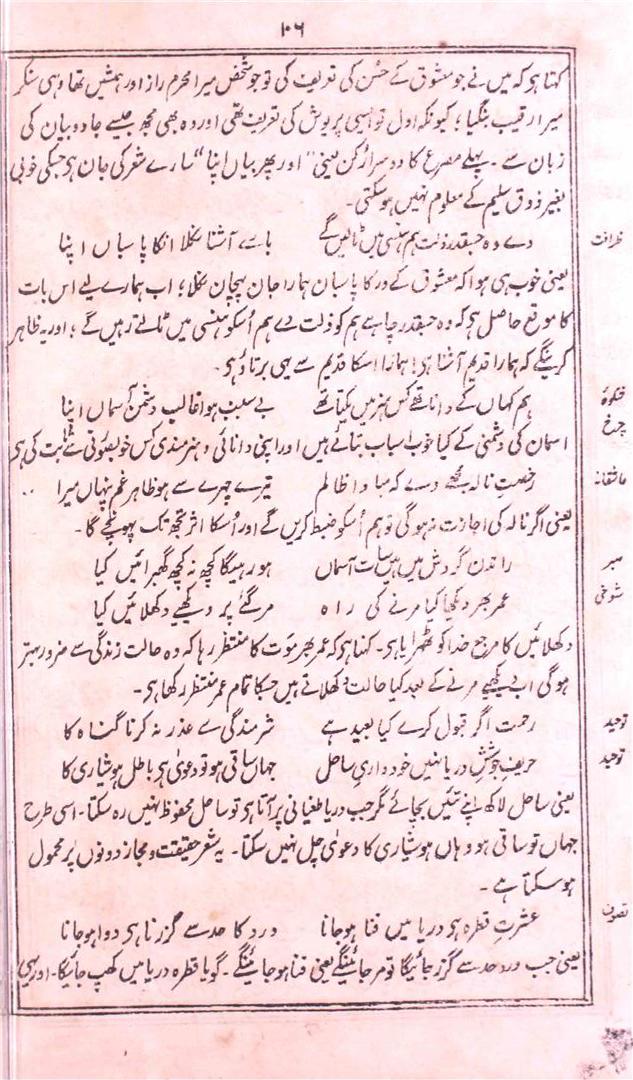 ۱۰۶
کہتا ہی کہ میں نے جو معشوق کے حُسن کی تعریف کی تو جو شخص میرا محرم راز اور ہمنشیں تھا وہی سنکر
میرا رقیب بنگیا؛ کیونکہ اول تو ایسی پریوش کی تعریف تھی اور وہ بھی مجھ جیسے جادو بیان کی
زبان سے۔ پہلے مصرع کا دوسرا رکن یعنی "اور پھر بیاں اپنا" سارے شعر کی جان ہی جسکی خوبی
بغیر ذوق سلیم کے معلوم نہیں ہوسکتی۔
ظرافت دے وہ جسقدر ذلت ہم ہنسی میں ٹالیں گے بارے آشنا نکلا انکا پاسباں اپنا
یعنی خوب ہی ہوا کہ معشوق کے در کا پاسبان ہمارا جان پہچان نکلا؛ اب ہمارے لیے اس بات
کا موقع حاصل ہی کہ وہ جسقدر چاہے ہم کو ذلت دے ہم اُسکو ہنسی میں ٹالتے رہیں گے؛ اور یہ ظاہر
کرینگے کہ ہمارا قدیم آشنا ہی! ہمارا اسکا قدیم سے یہی برتاؤ ہی۔
شکوۂ چرخ ہم کہاں کے دانا تھے کس ہنر میں یکتا تھے بے سبب ہوا غالب دشمن آسماں اپنا
اسمان کی دشمنی کے کیا خوب اسباب بتائے ہیں اور اپنی دانائی و ہنرمندی کس خوبصورتی سے ثابت کی ہی
عاشقانہ رخصتِ نالہ مجھے دے کہ مبادا ظالم تیرے چہرے سے ہو ظاہر غم پنہاں میرا
یعنی اگر نالہ کی اجازت نہ ہوگی تو ہم اُسکو ضبط کریں گے اور اُسکا اثر تجھ تک پہونچے گا۔
صبر رات دن گردش میں ہیں سات آسماں ہو رہیگا کچھ نہ کچھ گھبرائیں کیا
شوخی عمر بھر دیکھا کیا مرنے کی راہ مر گئے پر دیکھیے دکھلائیں کیا
دکھلائیں کا مرجع خدا کو ٹھہرایا ہی۔ کہتا ہی کہ عمر بھر موت کا منتظر رہا کہ وہ حالت زندگی سے ضرور بہتر
ہوگی اب دیکھیے مرنے کے بعد کیا حالت دکھلاتے ہیں جسکا تمام عمر منتظر رکھا ہی۔
توحید رحمت اگر قبول کرے کیا بعید ہے شرمندگی سے عذر نہ کرنا گناہ کا
توحید حریفِ جوششِ دریا نہیں خود داریِ ساحل جہاں ساقی ہو تو دعویٰ ہی باطل ہوشیاری کا
یعنی ساحل لاکھ اپنے تئیں بچائے مگر جب دریا طغیانی پر آتا ہی تو ساحل محفوظ نہیں رہ سکتا۔ اسی طرح
جہاں تو ساقی ہو وہاں ہوشیاری کا دعویٰ چل نہیں سکتا۔ یہ شعر حقیقت و مجاز دونوں پر محمول
ہوسکتا ہے۔
تصوف عشرتِ قطرہ ہی دریا میں فنا ہوجانا درد کا حد سے گزرنا ہی دوا ہوجانا
یعنی جب درد حد سے گزر جائیگا تو مر جائینگے یعنی فنا ہو جائینگے۔ گویا قطرہ دریا میں کھپ جائیگا۔ اور یہی